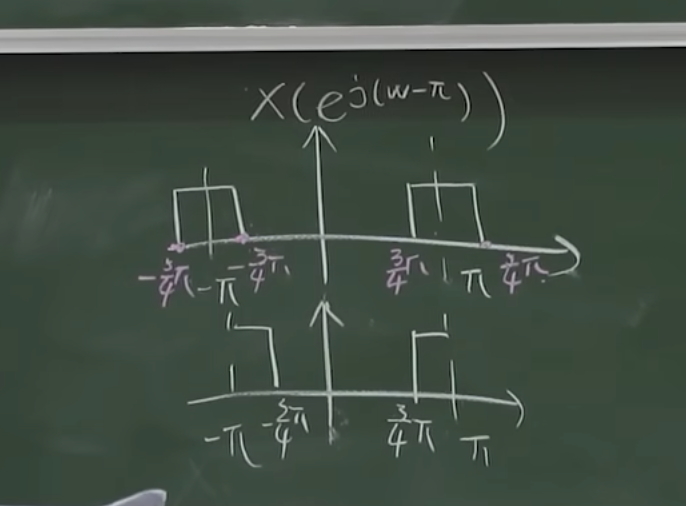 X(e^{j(w-π)})
-5/4π -π -3/4π 3/4π π 5/4π
-π -3/4π 3/4π π